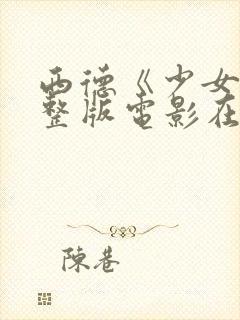 西德《少女
整版电影在
陳巷